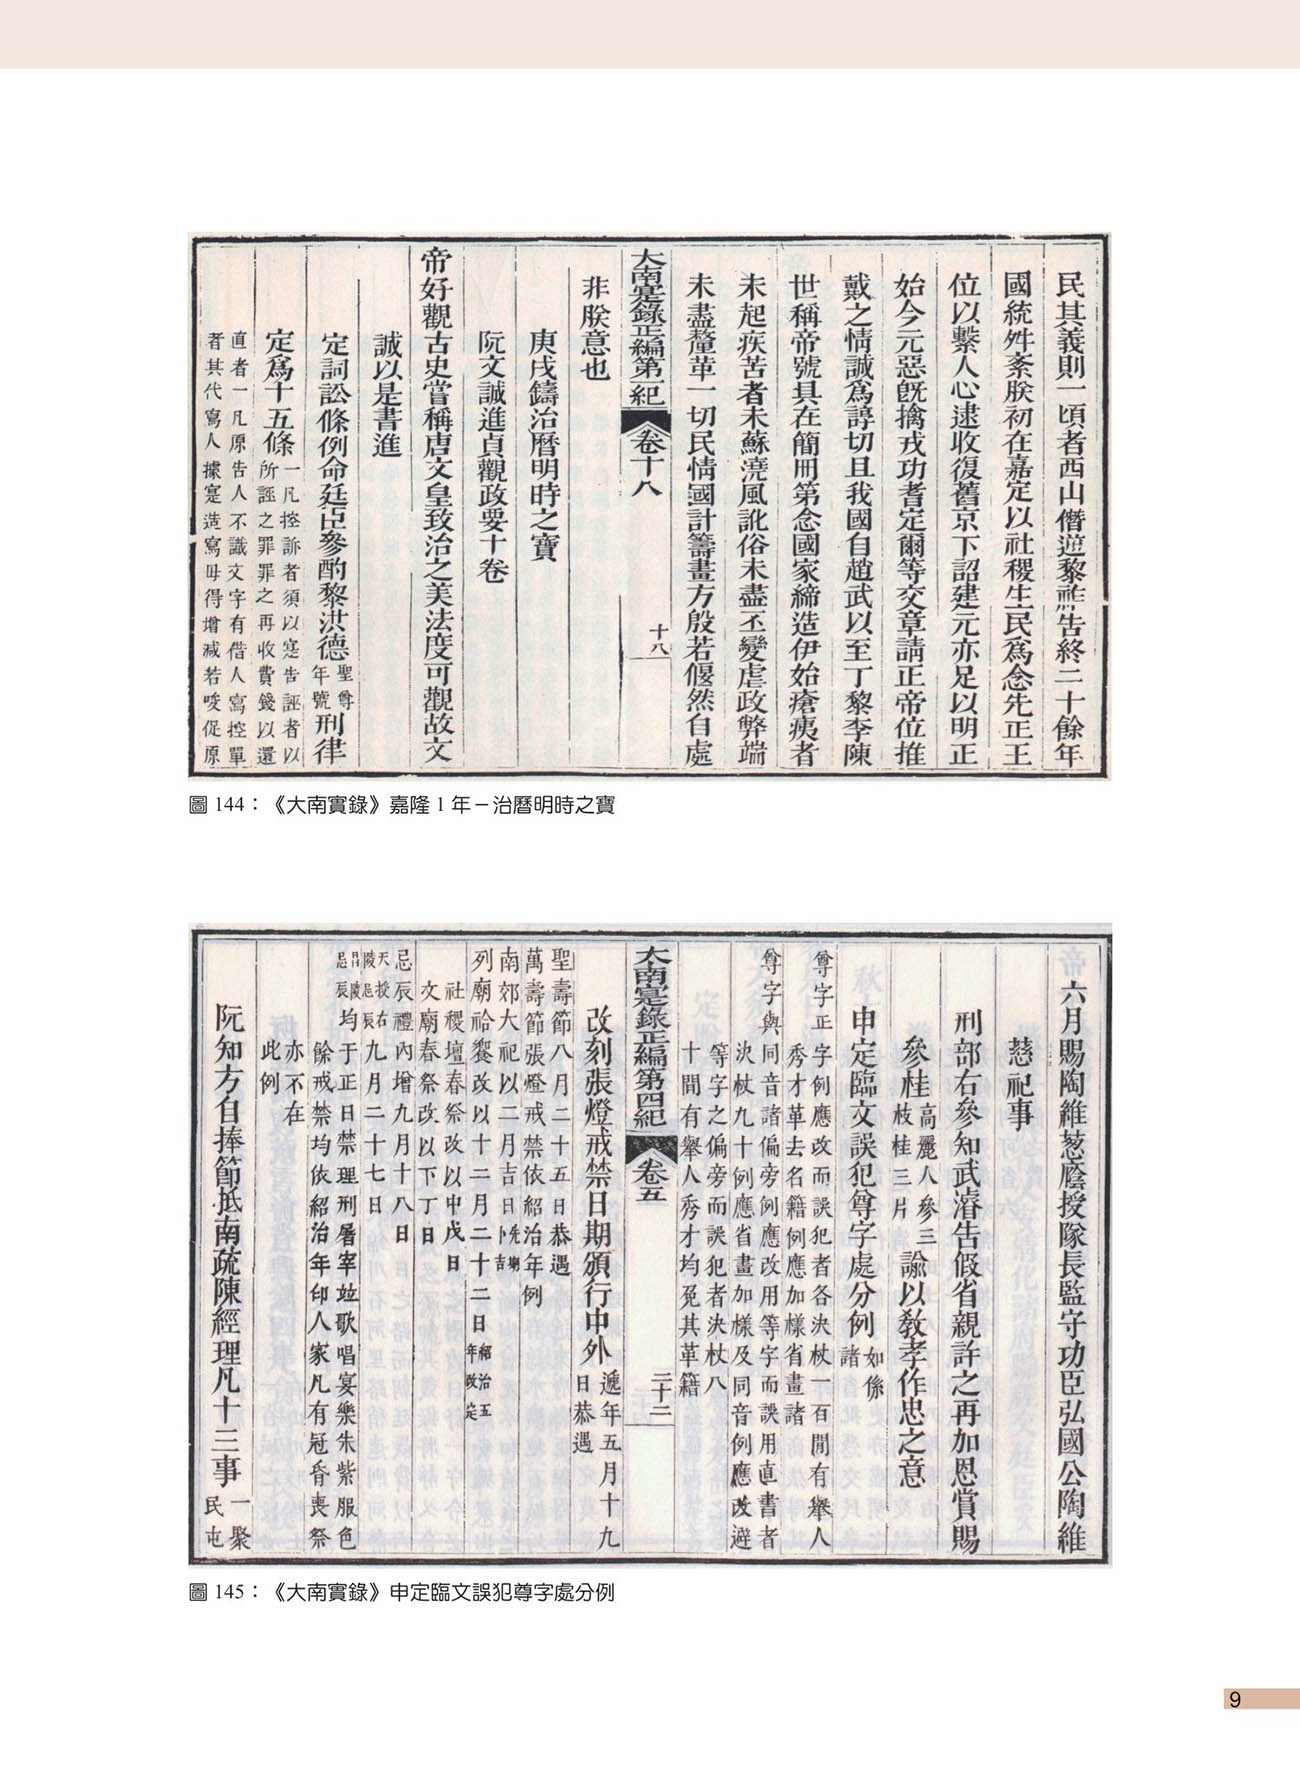 民其義則一頃者西山僭逆黎祚告終二十餘年
國統舛紊朕初在嘉定以社稷生民爲念先正王
位以繫人心逮收復舊京下詔建元亦足以明正
始今元惡旣擒戎功耆定爾等交章請正帝位推
戴之情誠爲諄切且我國自趙武以至丁黎李陳
世稱帝號具在簡冊第念國家締造伊始瘡痍者
未起疾苦者未蘇澆風訛俗未盡丕變虐政弊端
未盡釐革一切民情國計籌畫方殷若偃然自處
大南寔錄正編第一紀 卷十八 十八
非朕意也
庚戌鑄治曆明時之寶
阮文誠進貞觀政要十卷
帝好觀古史嘗稱唐文皇致治之美法度可觀故文
誠以是書進
定詞訟條例命廷臣參酌黎洪德聖尊年號刑律
定爲十五條一凡控訴者須以寔告誣者以
所誣之罪罪之再收費錢以還
直者一凡原告人不識文字有借人寫控單
者其代寫人據寔造寫毋得增減若唆促原
圖 144：《大南實錄》嘉隆 1 年－治曆明時之寶
帝六月賜陶維蔥廕授隊長監守功臣弘國公陶維
慈祀事
刑部右參知武濬告假省親許之再加恩賞賜
參桂高麗人參三枝桂三片諭以教孝作忠之意
申定臨文誤犯尊字處分例如係諸
尊字正字例應改而誤犯者各決杖一百間有舉人
秀才革去名籍例應加樣省畫諸
尊字與同音諸偏旁例應改用等字而誤用直書者
決杖九十例應省畫加樣及同音例應改避
等字之偏旁而誤犯者決杖八
十間有舉人秀才均免其革籍
大南寔錄正編第四紀 卷五 二十三
改刻張燈戒禁日期頒行中外遞年五月十九
日恭遇
聖壽節八月二十五日恭遇
萬壽節張燈戒禁依紹治年例
南郊大祀以二月吉日
列廟祫饗改以十二月二十二日紹治五年改定
社稷壇春祭改以中戊日
文廟春祭改以下丁日
忌辰禮內增九月十八日
天授右陵忌辰九月二十七日
昌陵忌辰均于正日禁理刑屠宰竝歌唱宴樂朱紫服色
餘戒禁均依紹治年印人家凡有冠昏喪祭
亦不在
此例
阮知方自捧節抵南疏陳經理凡十三事一聚
民屯
圖 145：《大南實錄》申定臨文誤犯尊字處分例
9